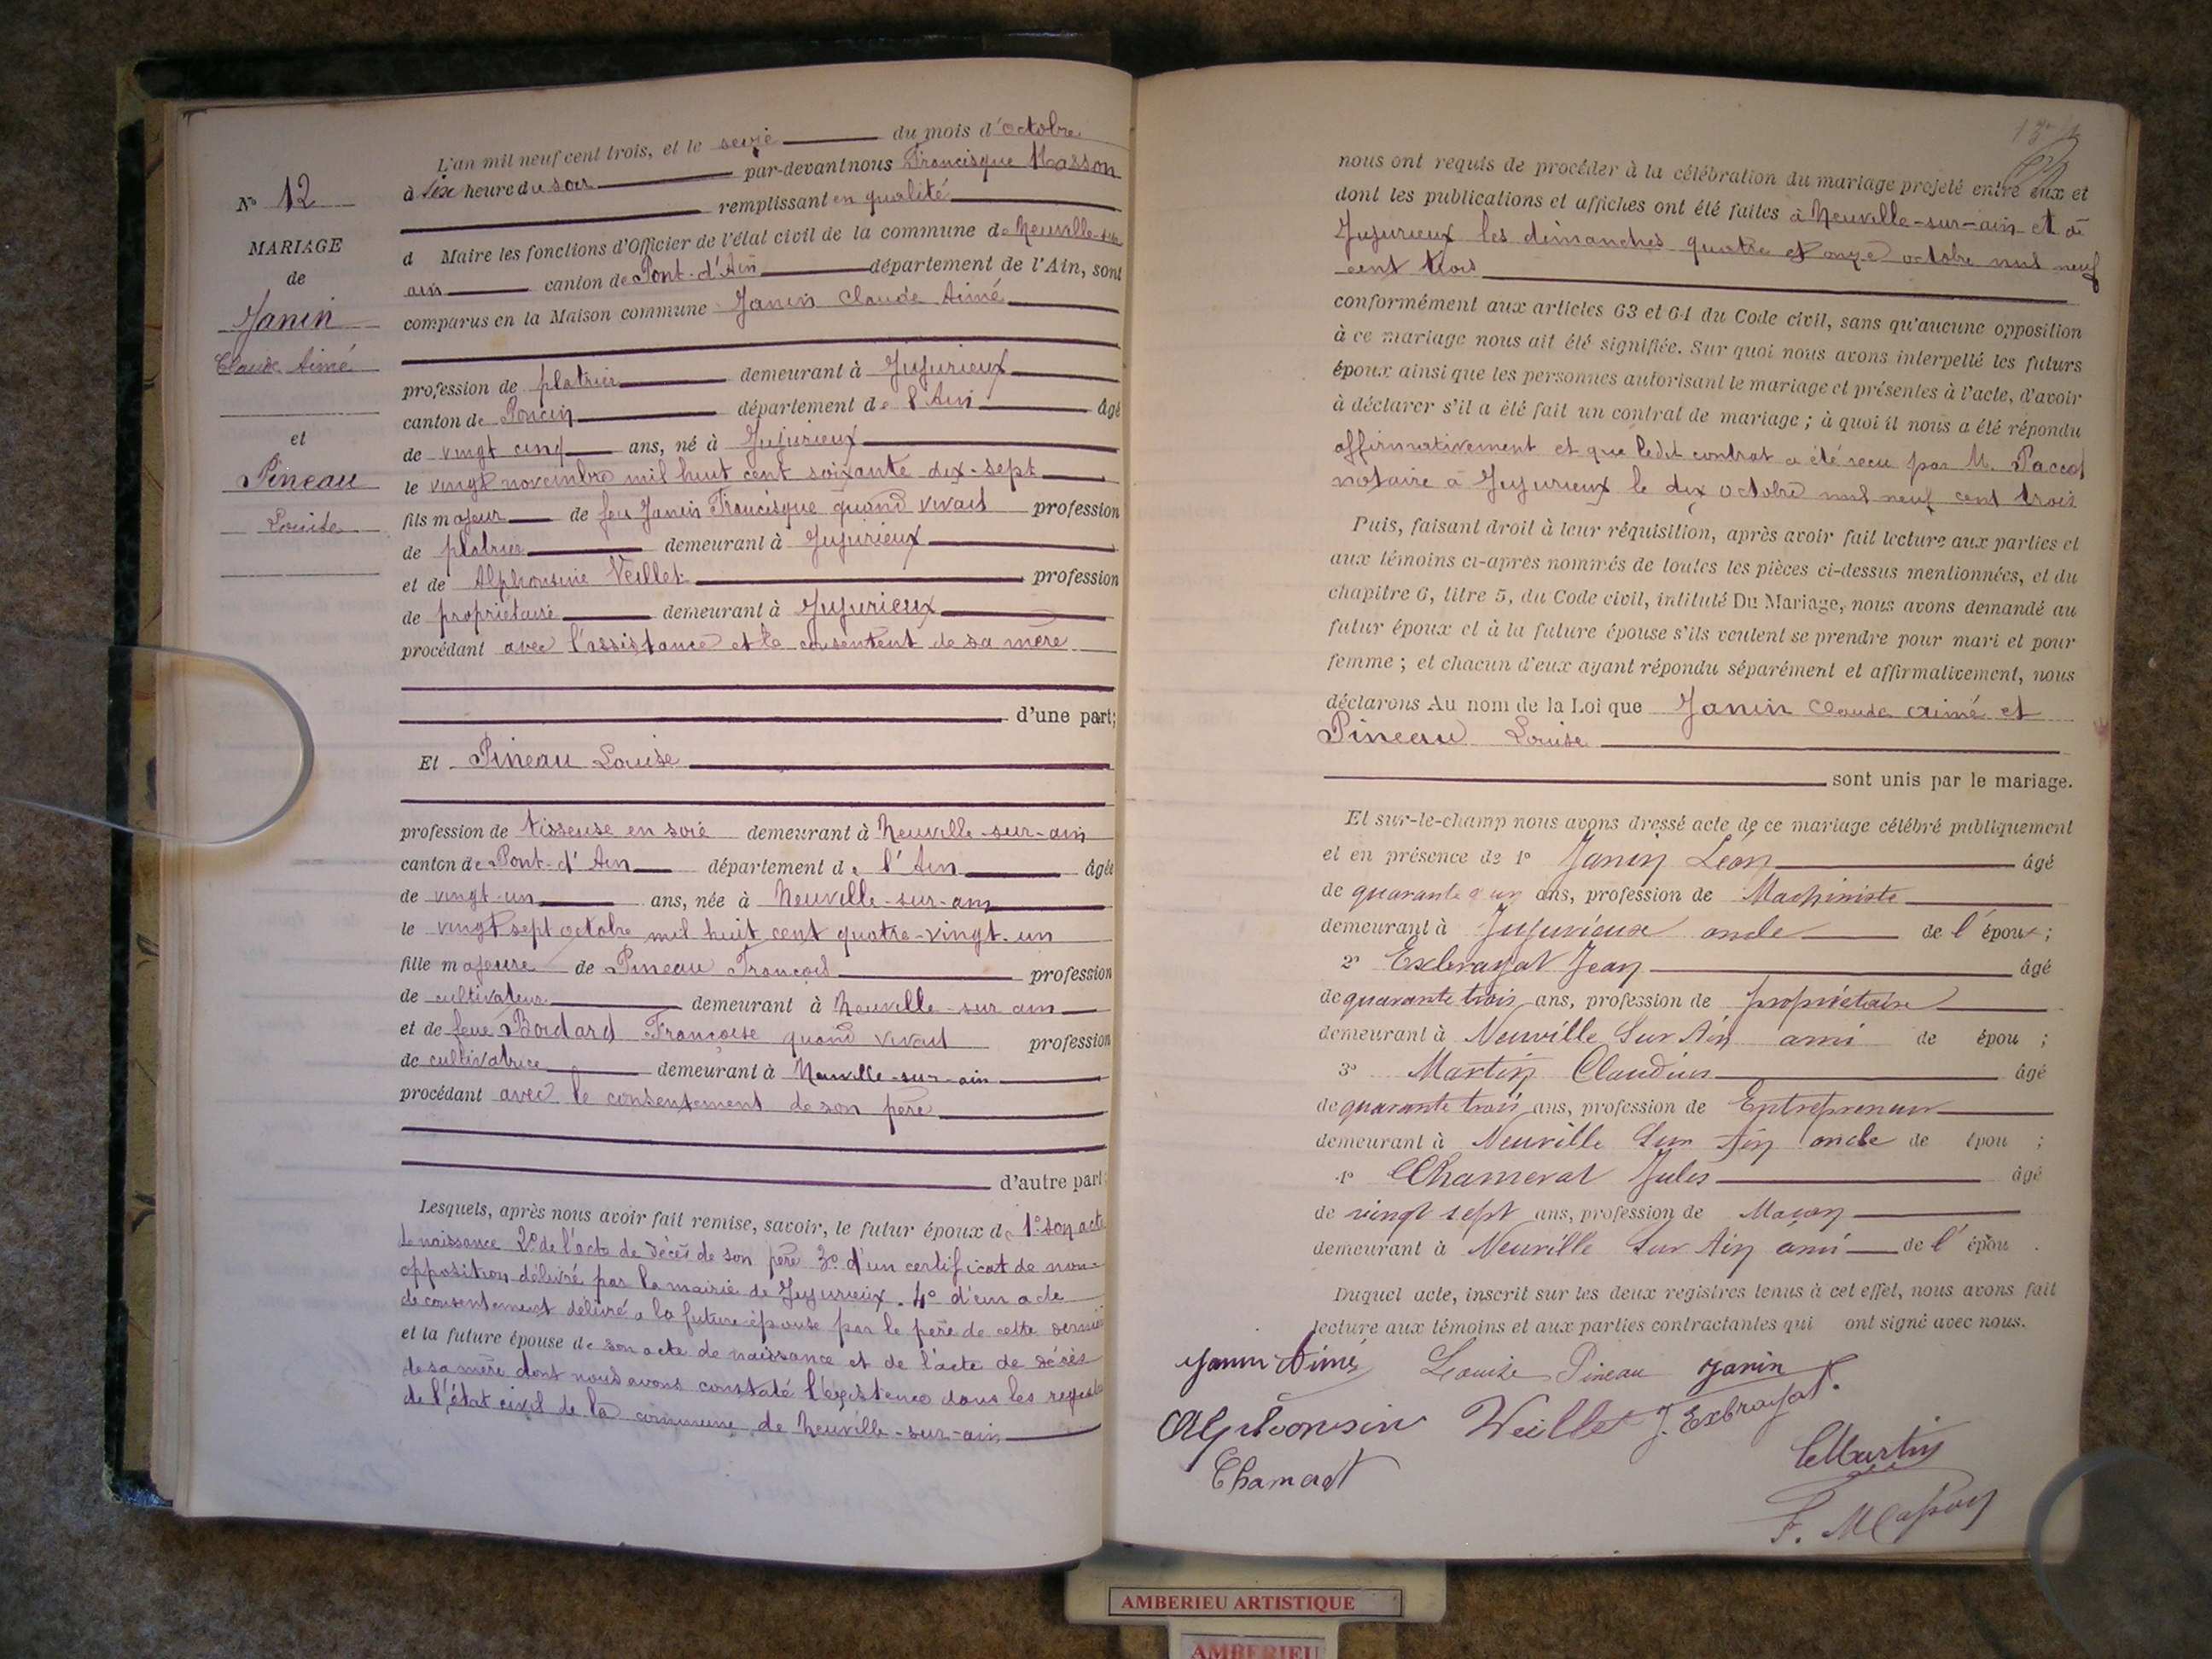 N° 12
MARIAGE
de
Janin
Claude Aimé
et
Pineau
Louise
L'an mil neuf cent trois, et le seize du mois d'octobre
à six heure du soir par-devant nous Francisque Masson
remplissant en qualité
d Maire les fonctions d'Officier de l'état civil de la commune de Neuville-sur
ain canton de Pont-d'Ain département de l'Ain, sont
comparus en la Maison commune Janin Claude Aimé
profession de platrier demeurant à Jujurieux
canton de Poncin département de l'Ain âgé
de vingt cinq ans, né à Jujurieux
le vingt novembre mil huit cent soixante dix-sept
fils majeur de feu Janin Francisque quand vivait profession
de platrier demeurant à Jujurieux
et de Alphonsine Veillet profession
de propriétaire demeurant à Jujurieux
procédant avec l'assistance et le consentent de sa mère
d'une part;
Et Pineau Louise
profession de tisseuse en soie demeurant à Neuville-sur-ain
canton de Pont-d'Ain département de l'Ain âgée
de vingt-un ans, née à Neuville-sur-ain
le vingt sept octobre mil huit cent quatre-vingt-un
fille majeure de Pineau François profession
de cultivateur demeurant à Neuville-sur ain
et de feue Boidard Françoise quand vivait profession
de cultivatrice demeurant à Neuville-sur-ain
procédant avec le consentement de son père
d'autre part
Lesquels, après nous avoir fait remise, savoir, le futur époux de 1° son acte
de naissance 2° de l'acte de décès de son père 3° d'un certificat de non-
opposition délivré par la mairie de Jujurieux. 4° d'un acte
de consentement délivré a la future épouse par le père de cette dernière
et la future épouse de son acte de naissance et de l'acte de décès
de sa mère dont nous avons constaté l'existence dans les registres
de l'état civil de la commune de Neuville-sur-ain
nous ont requis de procéder à la célébration du mariage projeté entre eux et
dont les publications et affiches ont été faites à Neuville-sur-ain et à
Jujurieux les dimanches quatre et onze octobre mil neuf
cent trois
conformément aux articles 63 et 64 du Code civil, sans qu'aucune opposition
à ce mariage nous ait été signifiée. Sur quoi nous avons interpellé les futurs
époux ainsi que les personnes autorisant le mariage et présentes à l'acte, d'avoir
à déclarer s'il a été fait un contrat de mariage; à quoi il nous a été répondu
affirmativement et que ledit contrat a été reçu par M. Paccot
notaire à Jujurieux le dix octobre mil neuf cent trois
Puis, faisant droit à leur réquisition, après avoir fait lecture aux parties et
aux témoins ci-après nommés de toutes les pièces ci-dessus mentionnées, et du
chapitre 6, titre 5, du Code civil, intitulé Du Mariage, nous avons demandé au
futur époux et à la future épouse s'ils veulent se prendre pour mari et pour
femme; et chacun d'eux ayant répondu séparément et affirmativement, nous
déclarons Au nom de la Loi que Janin Claude Aimé et
Pineau Louise
sont unis par le mariage.
Et sur-le-champ nous avons dressé acte de ce mariage célébré publiquement
et en présence de 1° Janin Léon âgé
de quarante ans, profession de Machiniste
demeurant à Jujurieux oncle de l'époux;
2° Exbrayat Jean âgé
de quarante trois ans, profession de propriétaire
demeurant à Neuville Sur Ain ami de épou ;
3° Martin Claudius âgé
de quarante trois ans, profession de Entrepreneur
demeurant à Neuville Sur Ain oncle de épou ;
4° Chamerat Jules âgé
de vingt sept ans, profession de Maçon
demeurant à Neuville Sur Ain ami de l'épou .
Duquel acte, inscrit sur les deux registres tenus à cet effet, nous avons fait
lecture aux témoins et aux parties contractantes qui ont signé avec nous.
Janin Aimé Louise Pineau Janin
Alphonsin Veillet J. Exbrayat.
Chamerat Cl Martin
F. Masson
AMBERIEU ARTISTIQUE
AMBERIEU